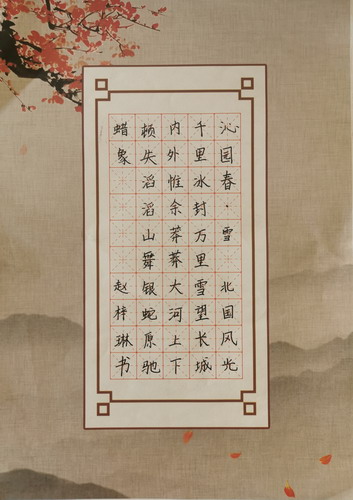 沁园春·雪 北国风光
千里冰封万里雪望长城
内外惟余莽莽大河上下
顿失滔滔山舞银蛇原驰
蜡象 赵梓琳书